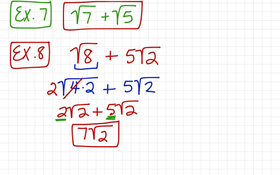 Ex. 7 √7 + √5
Ex. 8 √8 + 5√2
2√4·2 + 5√2
2√2 + 5√2
7√2